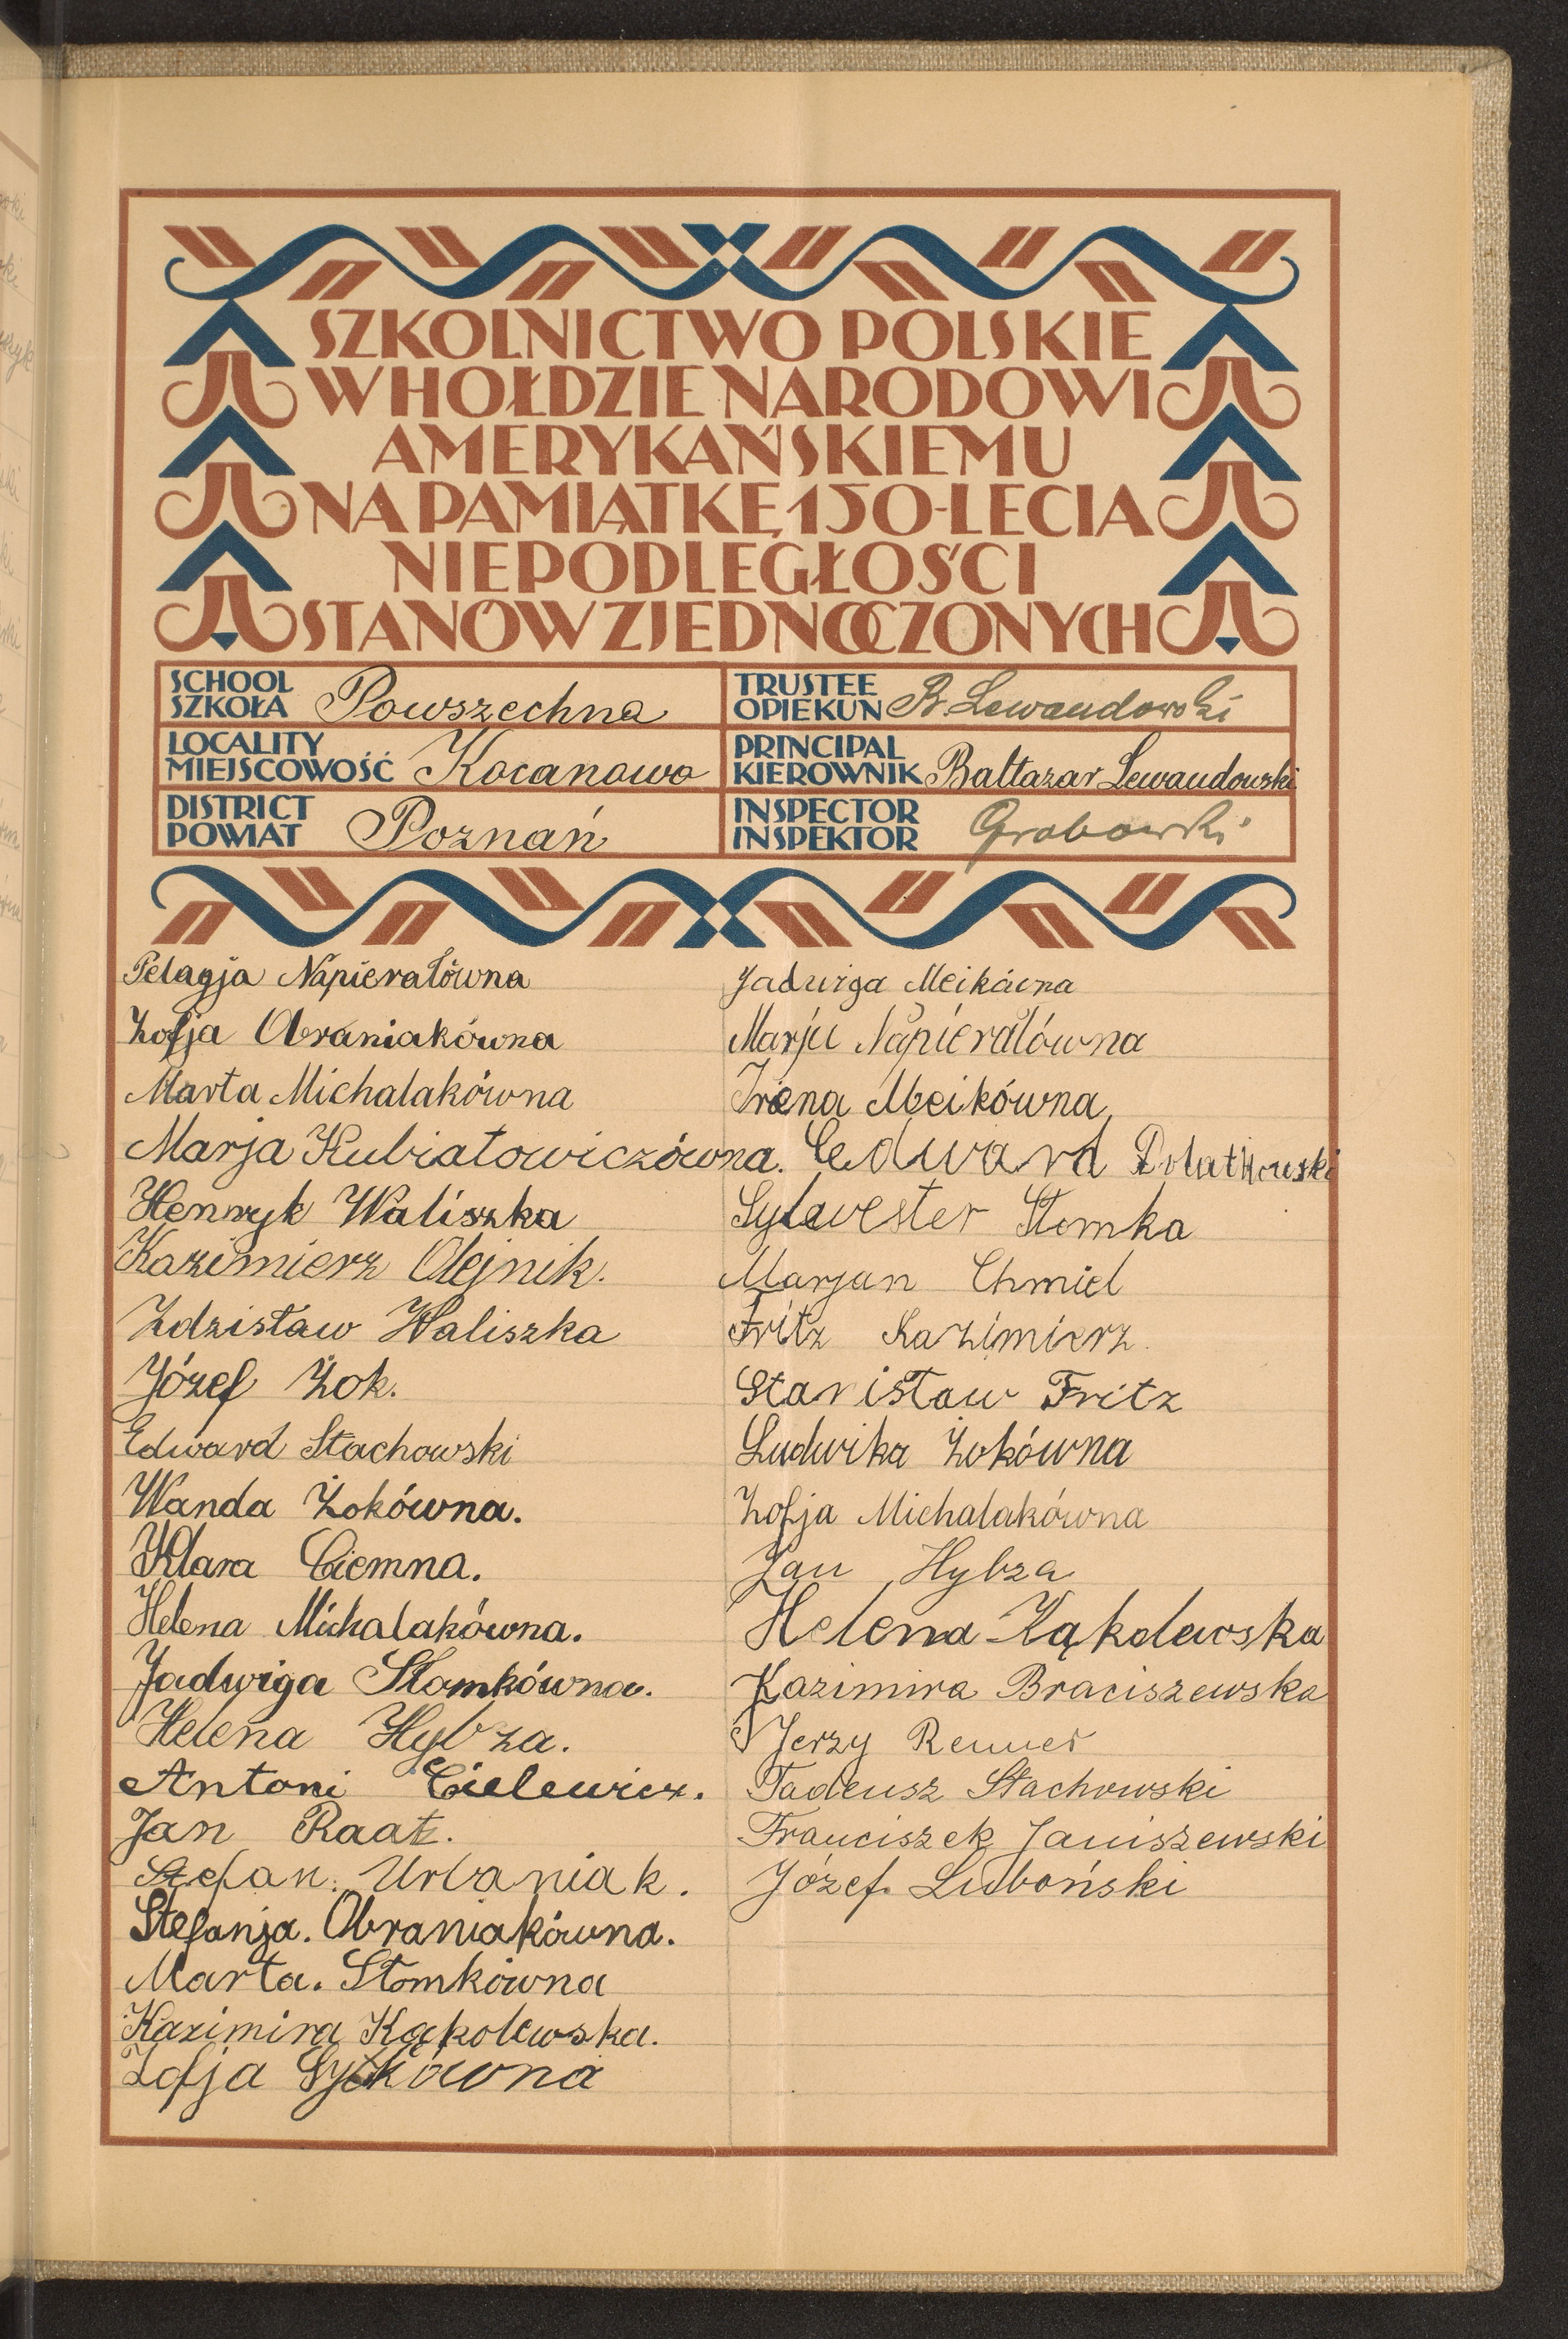 SZKOLNICTWO POLSKIE
W HOŁDZIE NARODOWI
AMERYKAŃSKIEMU
NA PAMIĄTKĘ 150-LECIA
NIEPODLEGŁOŚCI
STANÓW ZJEDNOCZONYCH
SCHOOL
SZKOŁA Powszechna
TRUSTEE
OPIEKUN B. Lewandowski
LOCALITY
MIEJSCOWOŚĆ Kocanowo
PRINCIPAL
KIEROWNIK Baltazar Lewandowski
DISTRICT
POWIAT Poznań
INSPECTOR
INSPEKTOR Grabowski
Pelagja Napierałówna
Zofja Obraniakówna
Marta Michalakówna
Marja Kubiatowiczówna.
Henryk Waliszka
Kazimierz Olejnik.
Zdzisław Waliszka
Józef Żok.
Edward Stachowski
Wanda Żokówna.
Klara Ciemna.
Helena Michalakówna.
Jadwiga Słomkówna.
Helena Hybza.
Antoni Cielewicz.
Jan Raatz.
Stefan. Urbaniak.
Stefanja. Obraniakówna.
Marta. Słomkówna
Kazimira Kąkolewska.
Zofja
Jadwiga Meikówna
Marja Napierałówna
Irena Meikówna,
Edward
Sylwester Słomka
Marjan Chmiel
Fritz Kazimierz.
Stanisław Fritz
Ludwika Żokówna
Zofja Michalakówna
Jan Hybza
Helena Kąkolewska
Kazimira Braciszewska
Jerzy Renner
Tadeusz Stachowski
Franciszek Janiszewski
Józef. Luboński